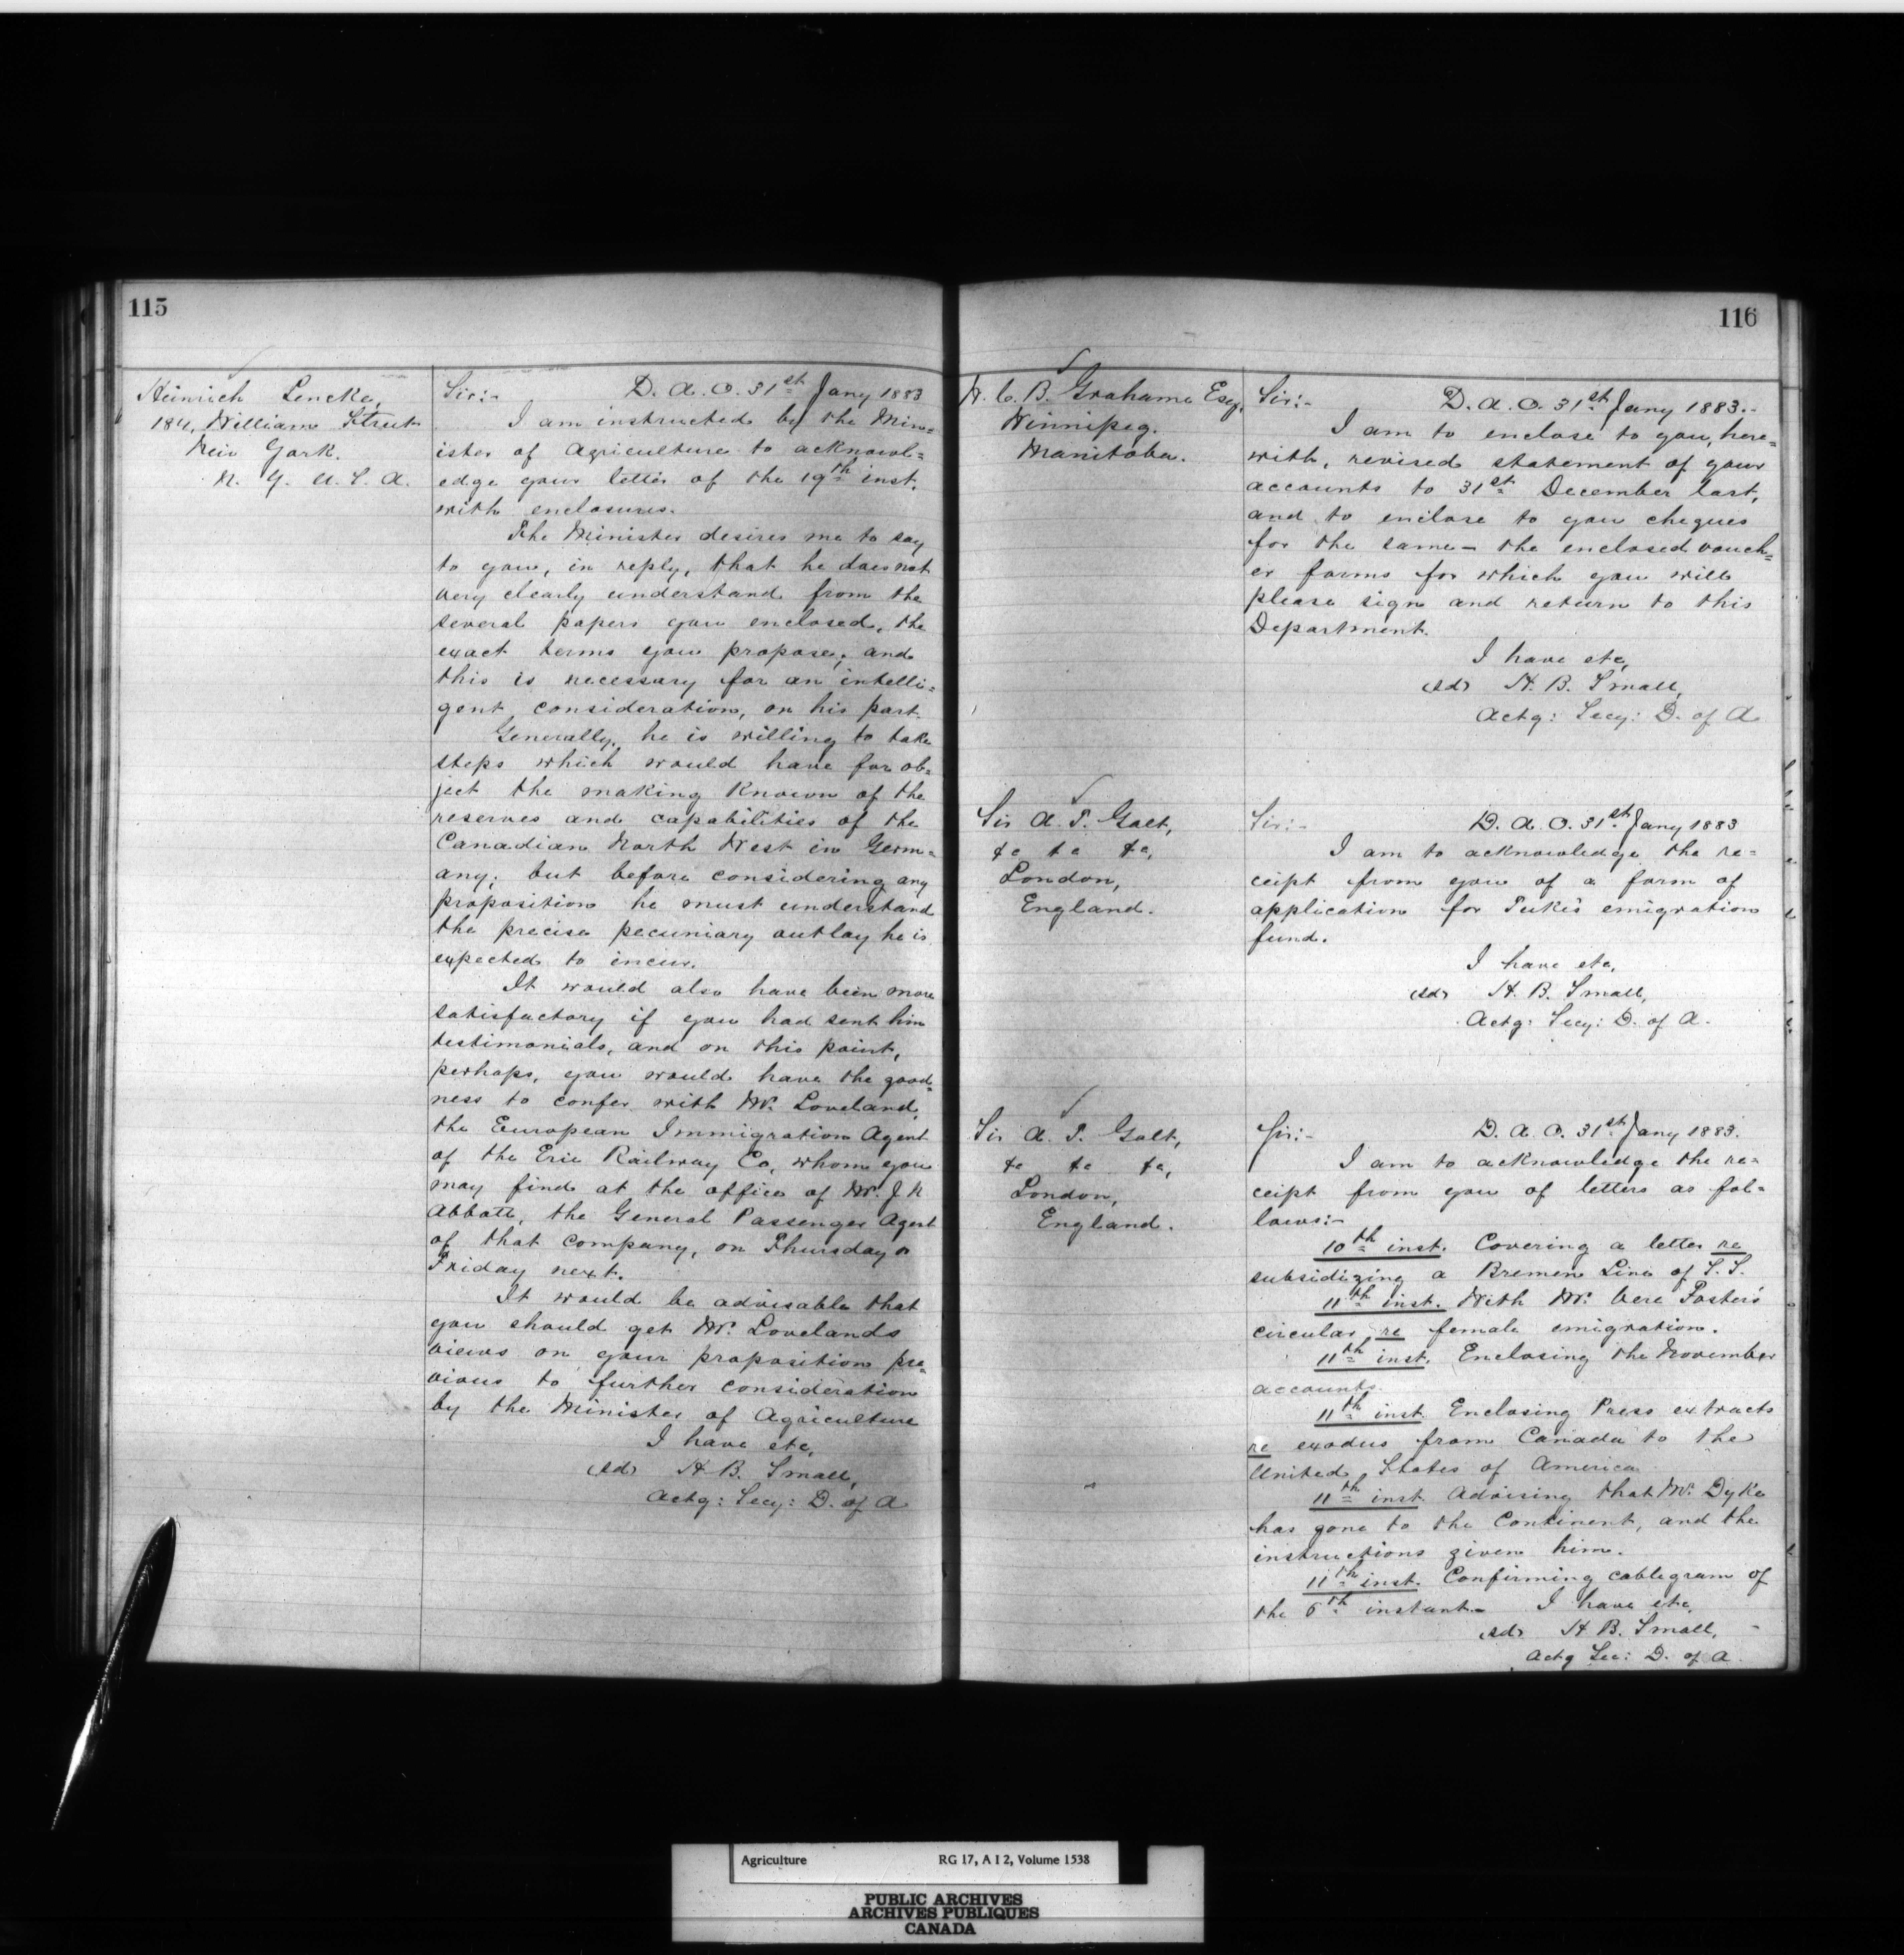 115
Heinrich Lencke,
184, William Street
New York.
N. Y. U. S. A.
Sir:- D. A. O. 31st Jany 1883
I am instructed by the Min=
ister of Agriculture to acknowl=
edge your letter of the 19th inst.
with enclosures.
The Minister desires me to say
to you, in reply, that he does not
very clearly understand from the
several papers you enclosed, the
exact terms you propose; and
this is necessary for an intelli=
gent consideration, on his part.
Generally, he is willing to take
steps which would have for ob=
ject the making known of the
reserves and capabilities of the
Canadian North West in Germ=
any; but before considering any
proposition he must understand
the precise pecuniary outlay he is
expected to incur.
It would also have been more
satisfactory if you had sent him
testimonials, and on this point,
perhaps, you would have the good=
ness to confer with Mr. Loveland,
the European Immigration Agent
of the Erie Railway Co, whom you
may find at the office of Mr. J N
Abbott, the General Passenger Agent
of that company, on Thursday or
Friday next.
It would be advisable that
you should get Mr. Lovelands
views on your proposition pre=
vious to further consideration
by the Minister of Agriculture
I have etc,
(sd) H. B. Small,
Actg: Secy: D. of A
116
W. C. B. Grahame Esq,
Winnipeg.
Manitoba.
Sir:- D. A. O. 31st Jany 1883.-
I am to enclose to you, here=
with, revised statement of your
accounts to 31st December last,
and to enclose to you cheques
for the same - the enclosed vouch=
er forms for which you will
please sign and return to this
Department.
I have etc,
(sd) H. B. Small,
Actg: Secy: D. of A
Sir A. T. Galt,
&c &c &c,
London,
England.
Sir:- D. A. O. 31st Jany 1883
I am to acknowledge the re=
ceipt from you of a form of
application for Tuke's emigration
fund.
I have etc,
(sd) H. B. Small,
Actg: Secy: D. of A.
Sir A. T. Galt,
&c &c &c,
London,
England.
Sir:- D. A. O. 31st Jany 1883.
I am to acknowledge the re=
ceipt from you of letters as fol=
lows:-
10th inst. Covering a letter re
subsidizing a Bremen Line of S. S.
11th inst. With Mr. Vere Foster's
circular re female emigration.
11th inst. Enclosing the November
accounts.
11th inst. Enclosing Press extracts
re exodus from Canada to the
United States of America
11th inst. Advising that Mr. Dyke
has gone to the Continent, and the
instructions given him.
11th inst. Confirming cablegram of
the 6th instant.- I have etc,
(sd) H. B. Small,
Actg Sec: D. of A.
Agriculture RG 17, A I 2, Volume 1538
PUBLIC ARCHIVES
ARCHIVES PUBLIQUES
CANADA